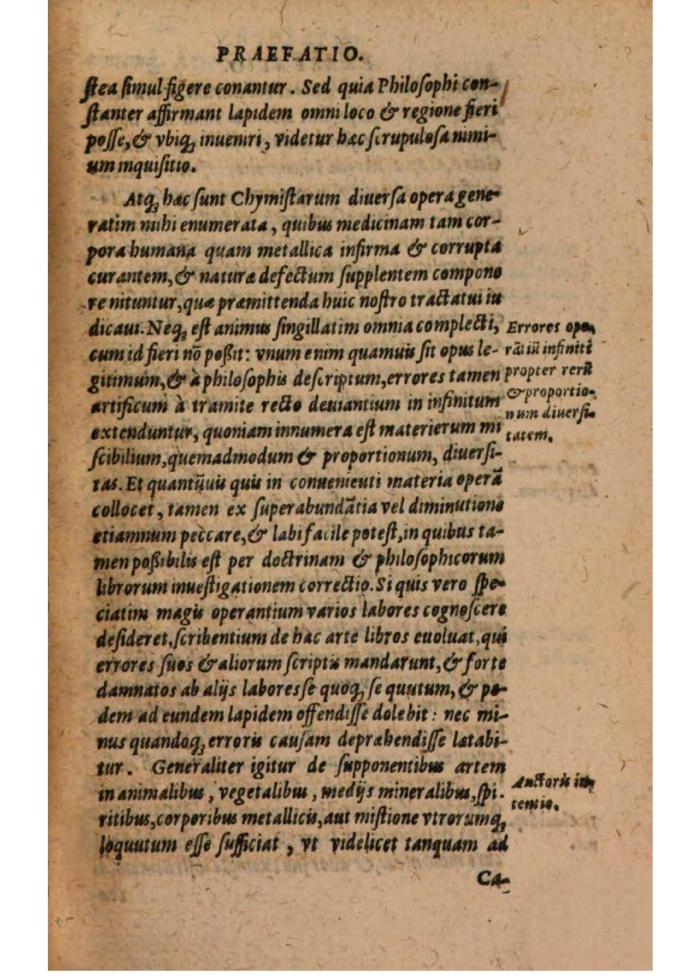 PRAEFATIO.
ſtea ſimul figere conantur. Sed quia Philoſophi con-
ſtanter affirmant lapidem omni loco & regione fieri
poſſe, & vbiq; inueniri, videtur hæc ſcrupuloſa nimi-
um inquiſitio.
Atq; hæc ſunt Chymiſtarum diuerſa opera gene-
ratim mihi enumerata, quibus medicinam tam cor-
pora humana quam metallica infirma & corrupta
curantem, & naturæ defectum ſupplentem compone
re nituntur, quæ præmittenda huic noſtro tractatui iu
dicaui. Neq; eſt animus ſingillatim omnia complecti,
cum id fieri nō poßit: vnum enim quamuis ſit opus le-
gitimum, & à philoſophis deſcriptum, errores tamen
artificum à tramite recto deuiantium in infinitum
extenduntur, quoniam innumera eſt materierum mi
ſcibilium, quemadmodum & proportionum, diuerſi-
tas. Et quantūuis quis in conuenienti materia operā
collocet, tamen ex ſuperabundātia vel diminutione
etiamnum peccare, & labi facile poteſt, in quibus ta-
men poßibilis eſt per doctrinam & philoſophicorum
librorum inueſtigationem correctio. Si quis vero ſpe-
ciatim magis operantium varios labores cognoſcere
deſideret, ſcribentium de hac arte libros euoluat, qui
errores ſuos & aliorum ſcriptis mandarunt, & forte
damnatos ab alijs labores ſe quoq; ſequutum, & pe-
dem ad eundem lapidem offendiſſe dolebit: nec mi-
nus quandoq; erroris cauſam deprehendiſſe lætabi-
tur. Generaliter igitur de ſupponentibus artem
in animalibus, vegetalibus, medijs mineralibus, ſpi-
ritibus, corporibus metallicis, aut miſtione vtrorumq;
loquutum eſſe ſufficiat, vt videlicet tanquam ad
Ca-
Errores ope-
rātiū infiniti
propter rerū
& proportio-
num diuerſi-
tatem.
Auctoris in-
tentio.